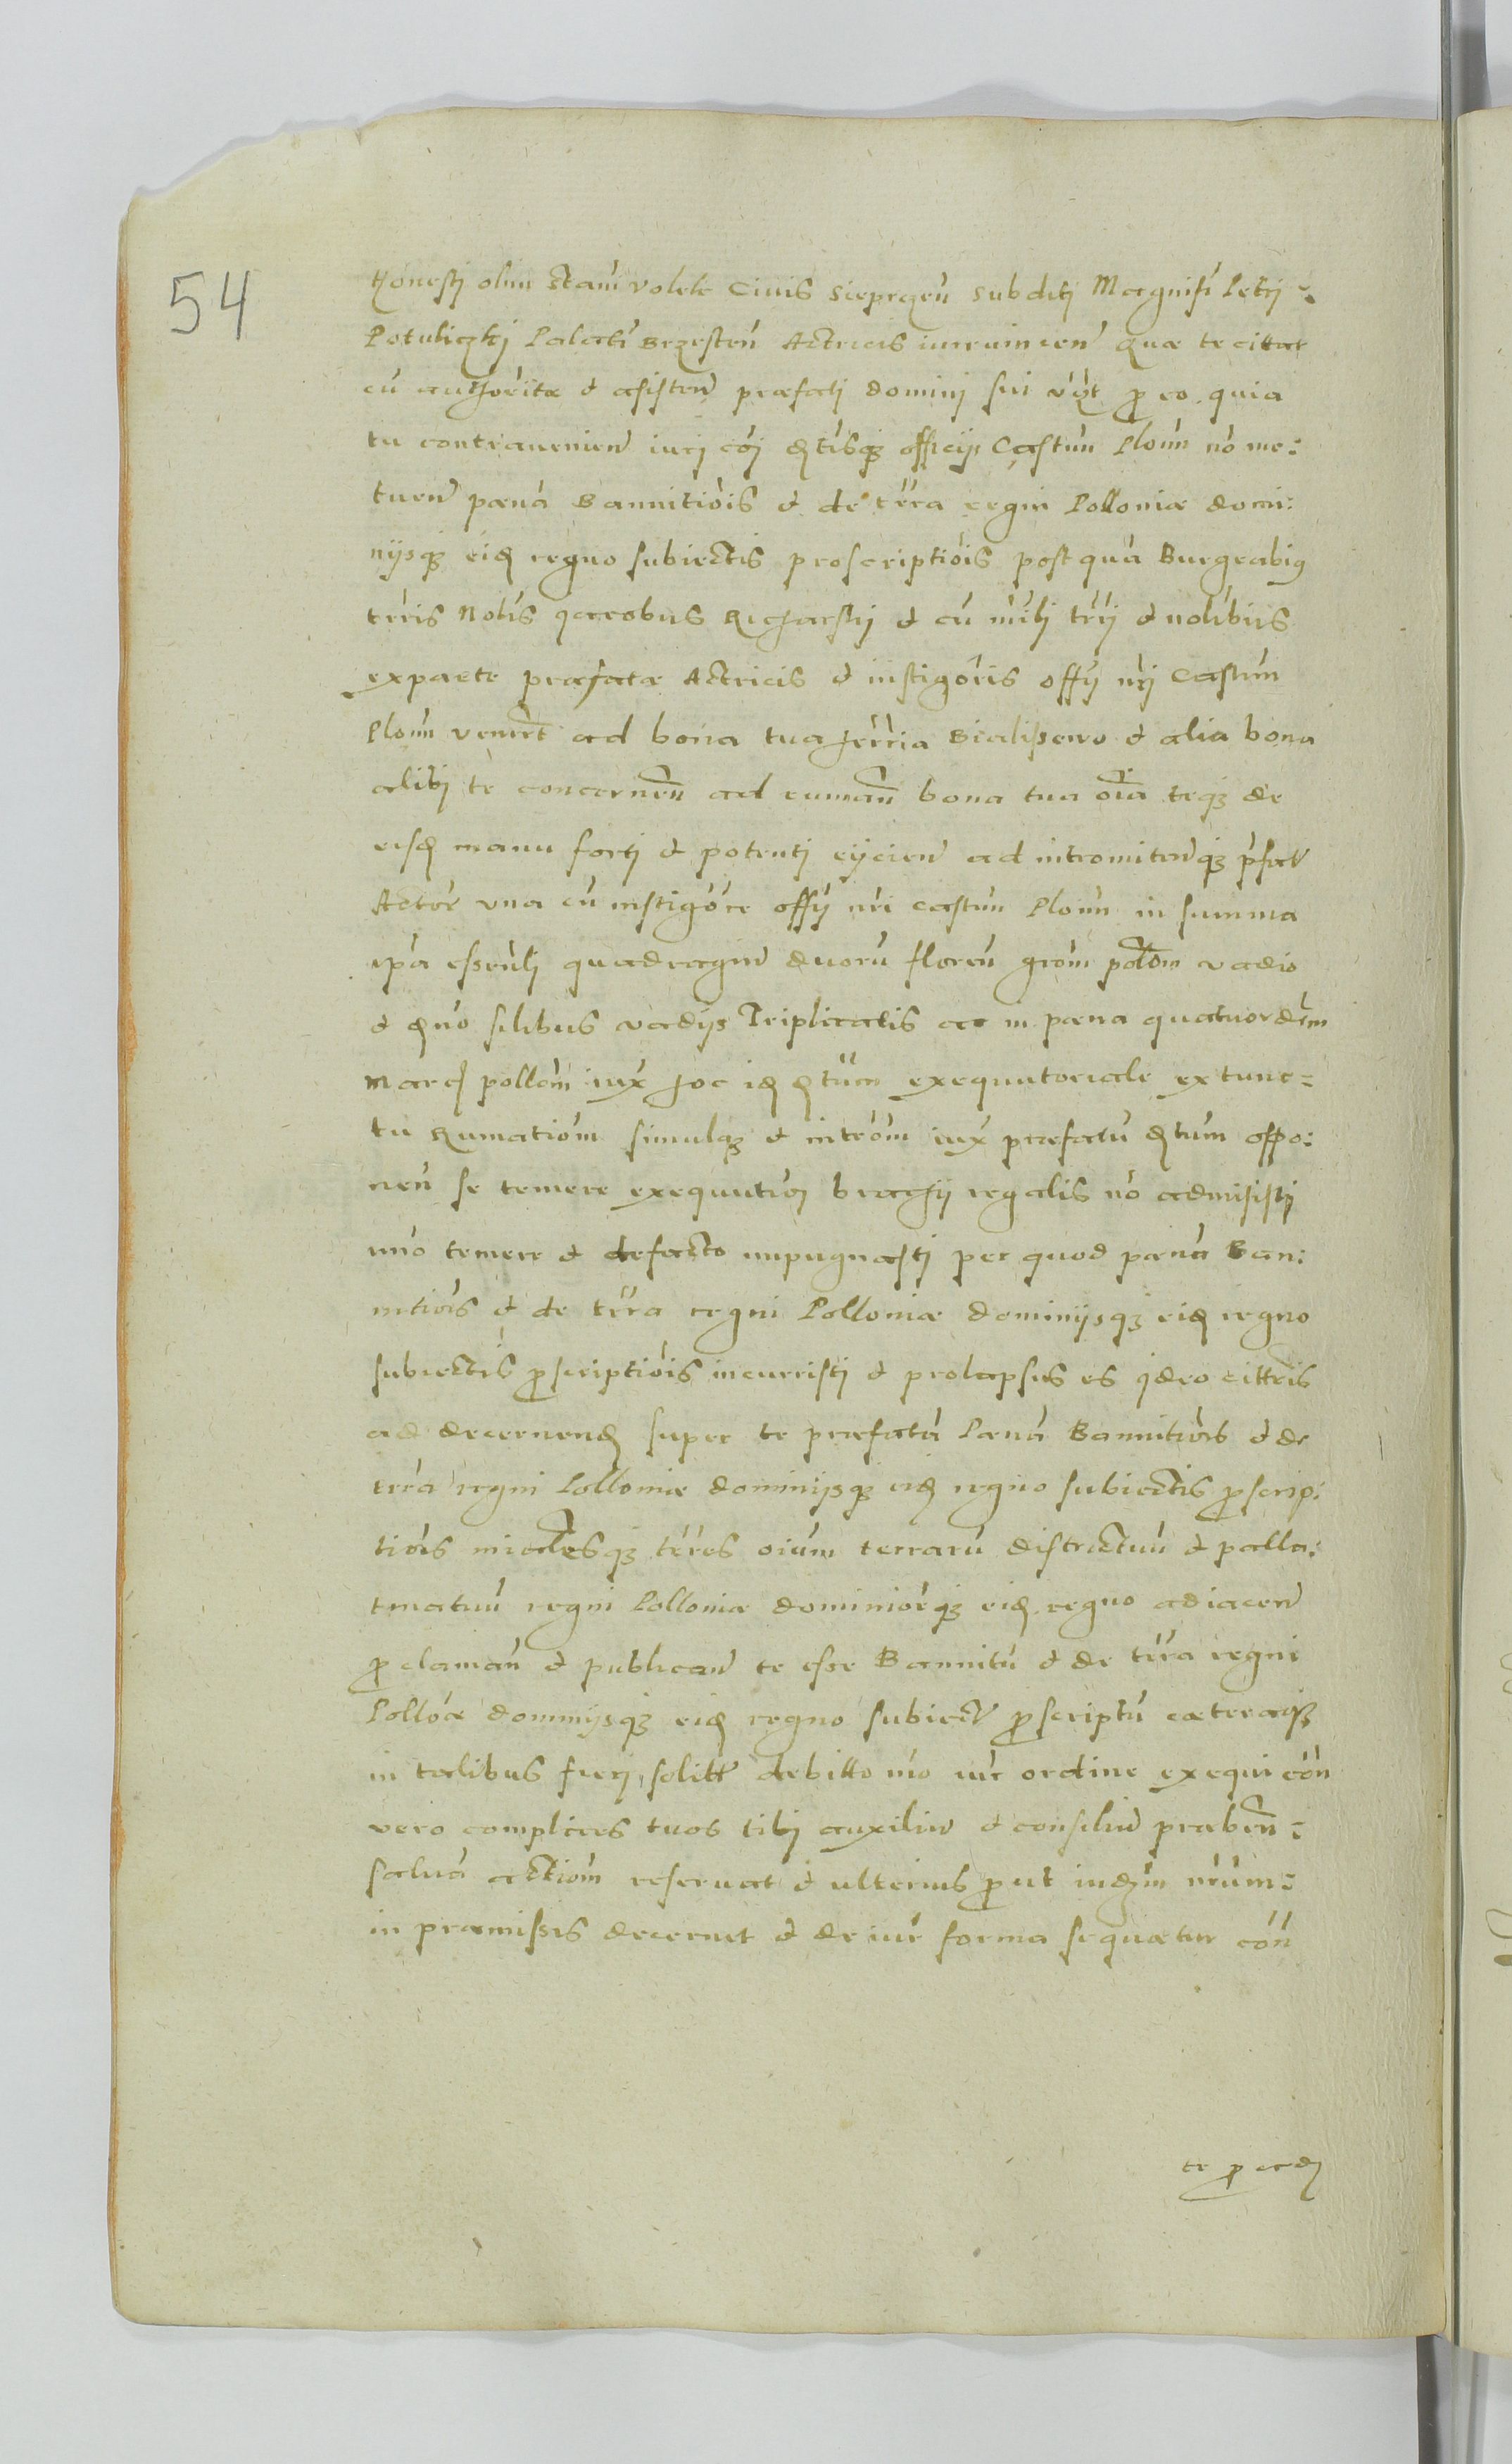 54
Honesti olim Stani Volek Civis Sieprcen subditi Magnifi Petri
Potuliczki Palati Brzesten Actricis quæ te citat
cu authoritæ & asisten præfati domini sui pro eo quia
tu contravenien iuri coi officij Castrin Plocn no me:
tuen pæna Bannitiois & de terra regni Polloniæ domi:
nijsq eid regno subiectis proscriptiois post qua Burgrabi9
tris Nobis Jacobus Richarskj & cu & nobibus
ex parte præfatæ Actricis & instigoris offij nri Castrin
Plocn venert ad bona tua hæria & alia bona
alibi te concernen ad bona tua oia teq de
eisd manu forti & potenti eijcien ad intromitenq præfat
Actor una cu instigore offij nri castrin Plocn in summa
ipa essenli quadragin duoru floren grom polom vadio
& silibus vadijs Triplicatis ac in pæna quatuordcim
marc pollom iux hoc id exequutoriale ex tunc
tu Rumatiom simulq & introm iux præfatu oppo:
nen se temere exequutioi brachij regalis no admisisti
imo temere & defacto impugnasti per quod pæna Ban:
nitiois & de terra regni Polloniæ dominijsq eid regno
subiectis proscriptiois incurristi & prolapsus es ideo citteris
ad decernend super te præfata Pæna Bannitiois & de
terra regni Polloniæ dominijsq eid regno subiectis proscrip:
tiois terres oium terraru districtuu & palla:
tinatuu regni Polloniæ dominiorq eid regno adiacen
proclaman & publican te esse Bannitu & de terra regni
Polloæ dominijsq eid regno subiect proscriptu cæteraq
in talibus fieri solitt debitto mo iur ordine exequi con
vero complices tuos tibi auxiliu & consiliu præben
salva actiom reservat & ulterius prout nrum
in præmissis decernet & de iur forma sequætur con
te pro ad